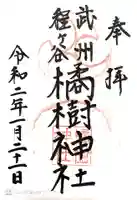 奉拝
武州
経ヶ谷
橘樹神社
令和二年一月二十一日